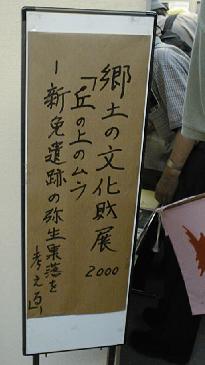 郷土の文化財展
2000
「丘の上のムラ
－新免遺跡の弥生集落を
考える」